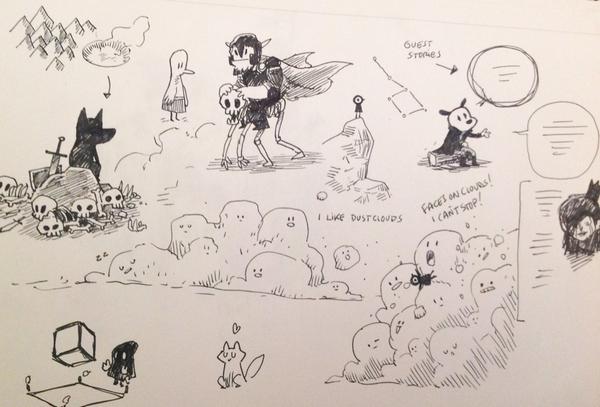 GUEST
STORIES
I LIKE DUST CLOUDS
FACES ON CLOUDS!
I CAN'T STOP!
zz